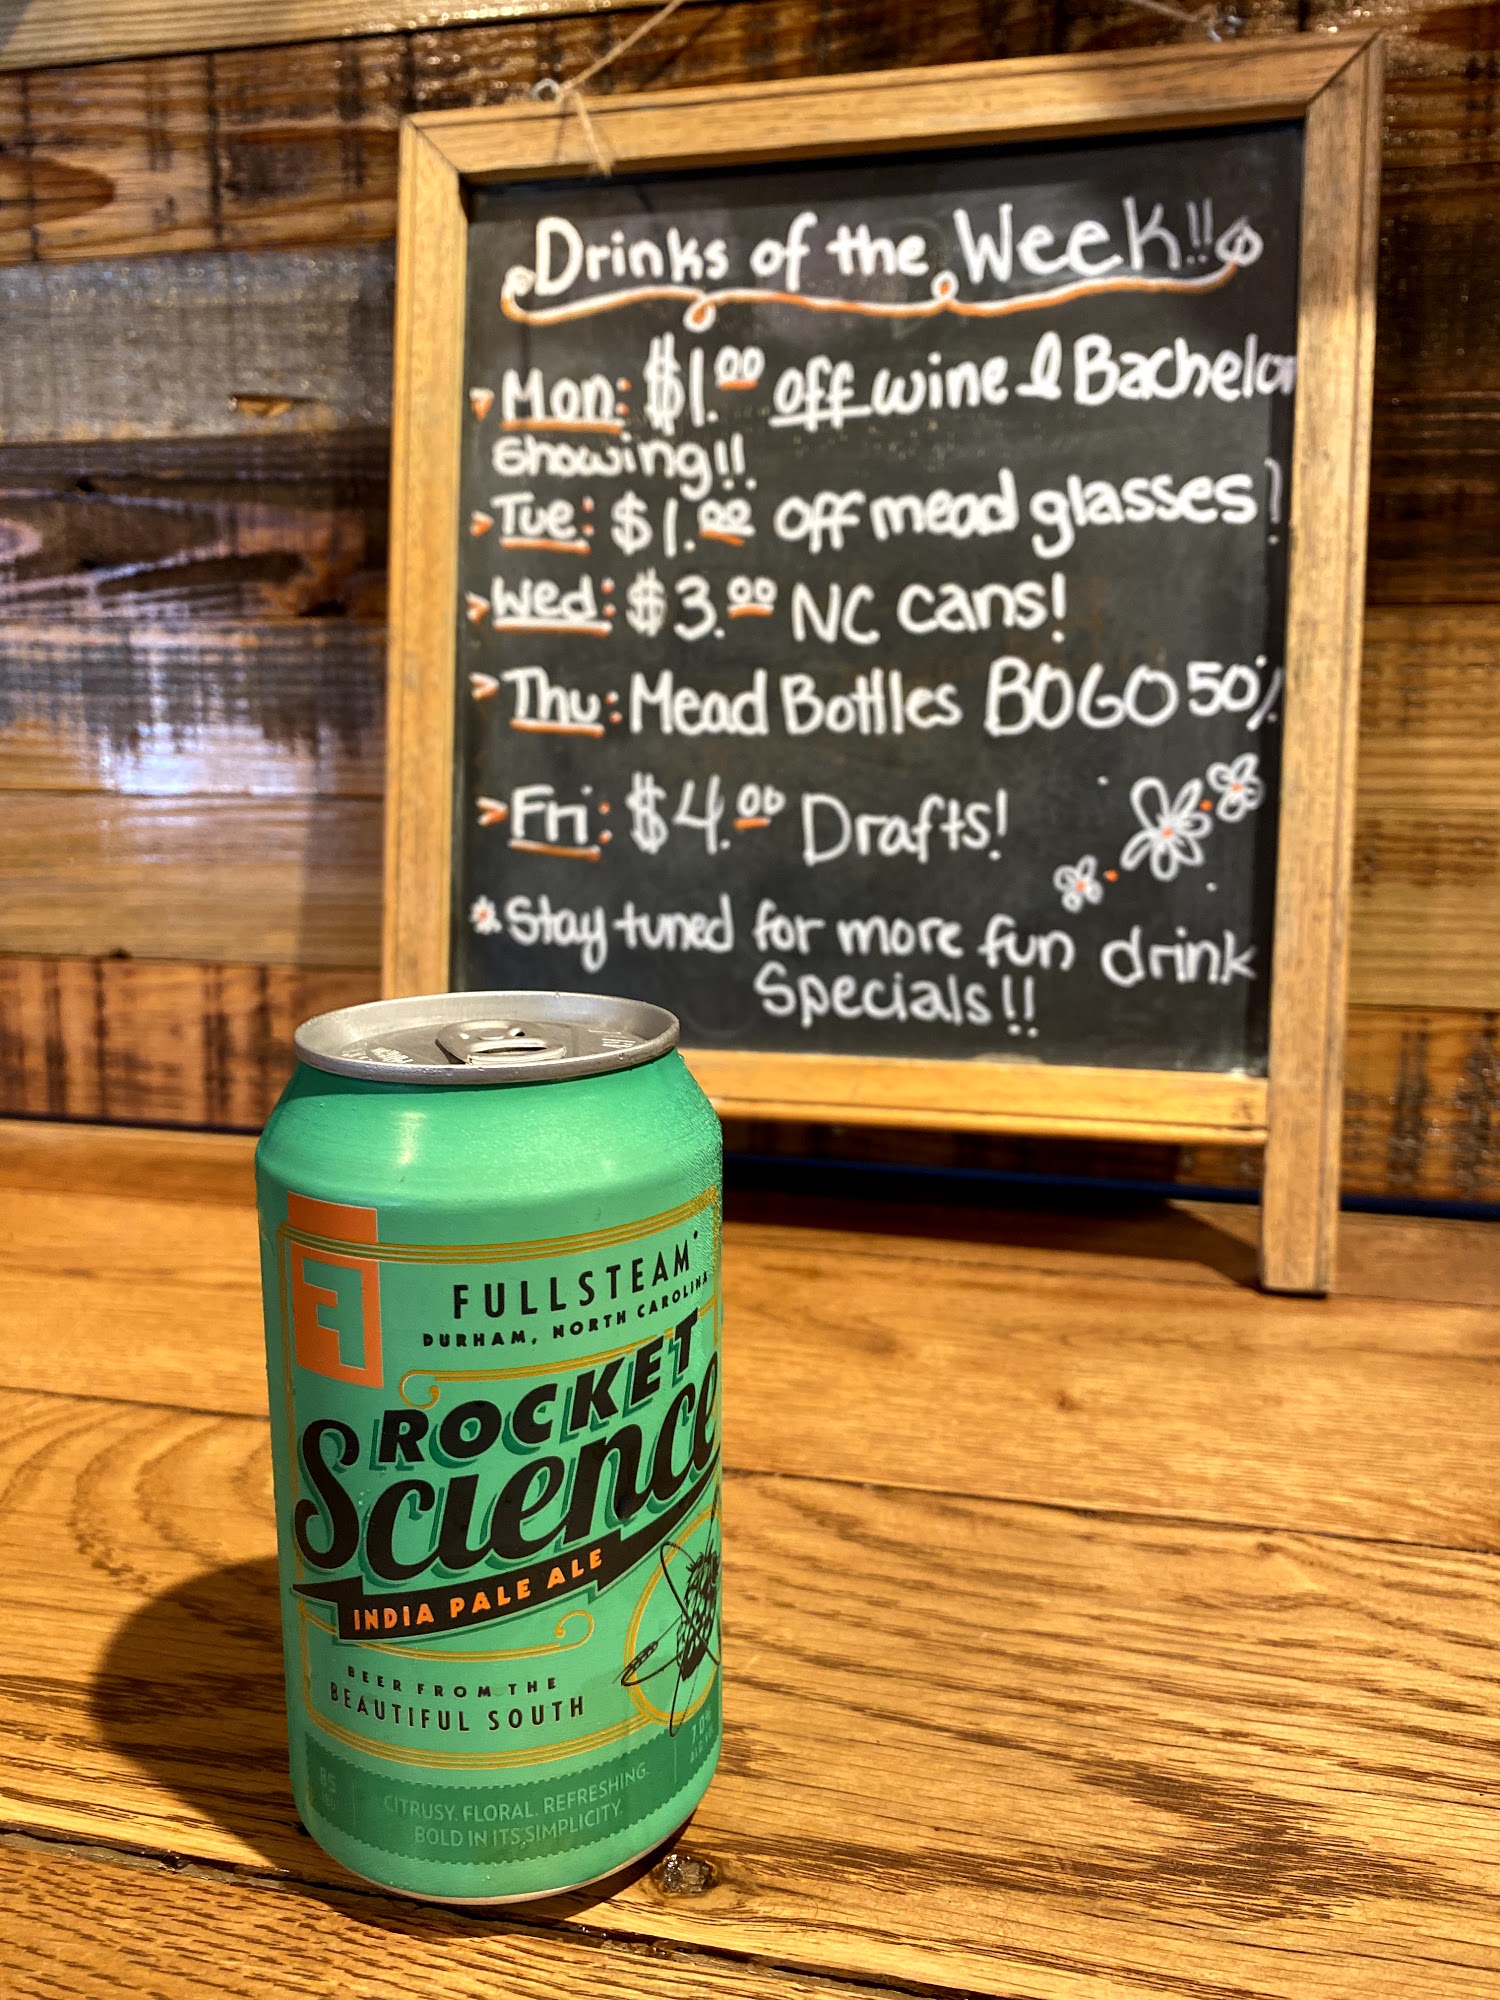 Drinks of the Week!!
Mon: $1.00 off wine & Bachelor
Showing!!
Tue: $1.00 off mead glasses!
Wed: $3.00 NC cans!
Thu: Mead Bottles BOGO 50%
Fri: $4.00 Drafts!
*Stay tuned for more fun drink
Specials!!
FULLSTEAM
DURHAM, NORTH CAROLINA
ROCKET
Science
INDIA PALE ALE
BEER FROM THE
BEAUTIFUL SOUTH
85
7.0%
CITRUSY. FLORAL. REFRESHING.
BOLD IN ITS SIMPLICITY.